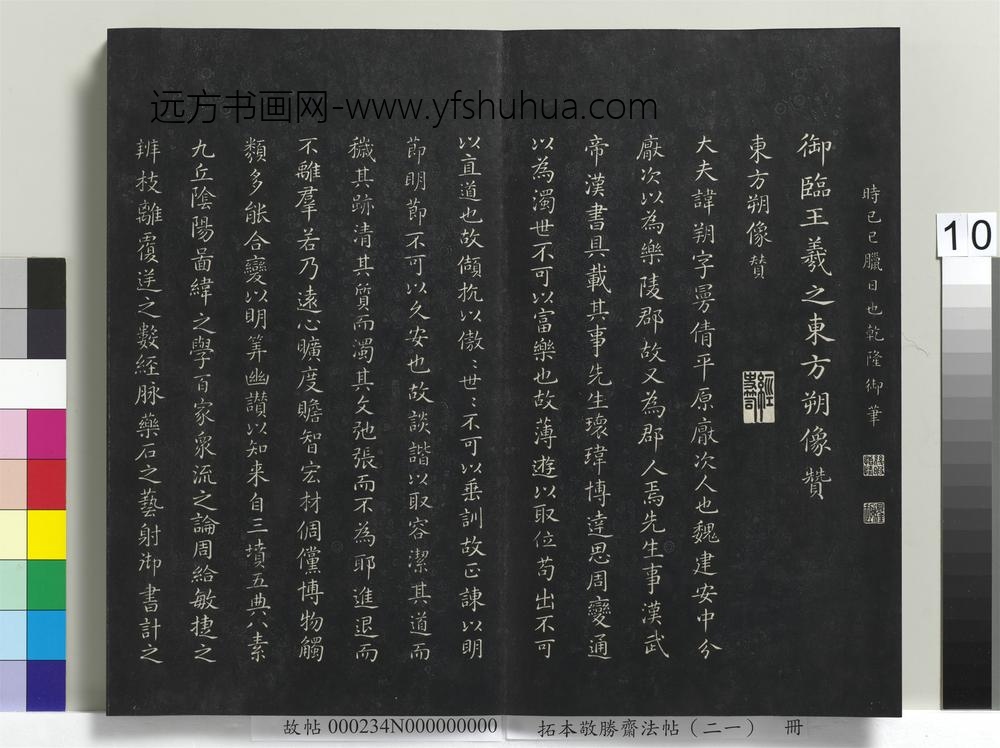 远方书画网-www.yfshuhua.com
時己巳臘日也乾隆御筆
御臨王羲之東方朔像贊
東方朔像贊
大夫諱朔字曼倩平原厭次人也魏建安中分
厭次以為樂陵郡故又為郡人焉先生事漢武
帝漢書具載其事先生瓌瑋博達思周變通
以為濁世不可以富樂也故薄遊以取位苟出不可
以直道也故頡抗以傲〻世〻不可以垂訓故正諫以明
節明節不可以久安也故談諧以取容潔其道而
穢其跡清其質而濁其文弛張而不為耶進退而
不離羣若乃遠心曠度贍智宏材倜儻博物觸
類多能合變以明筭幽讚以知来自三墳五典八素
九丘陰陽圖緯之學百家衆流之論周給敏捷之
辨技離覆逆之數經脉藥石之藝射御書計之
10
故帖 000234N000000000 拓本敬勝齋法帖（二一） 冊